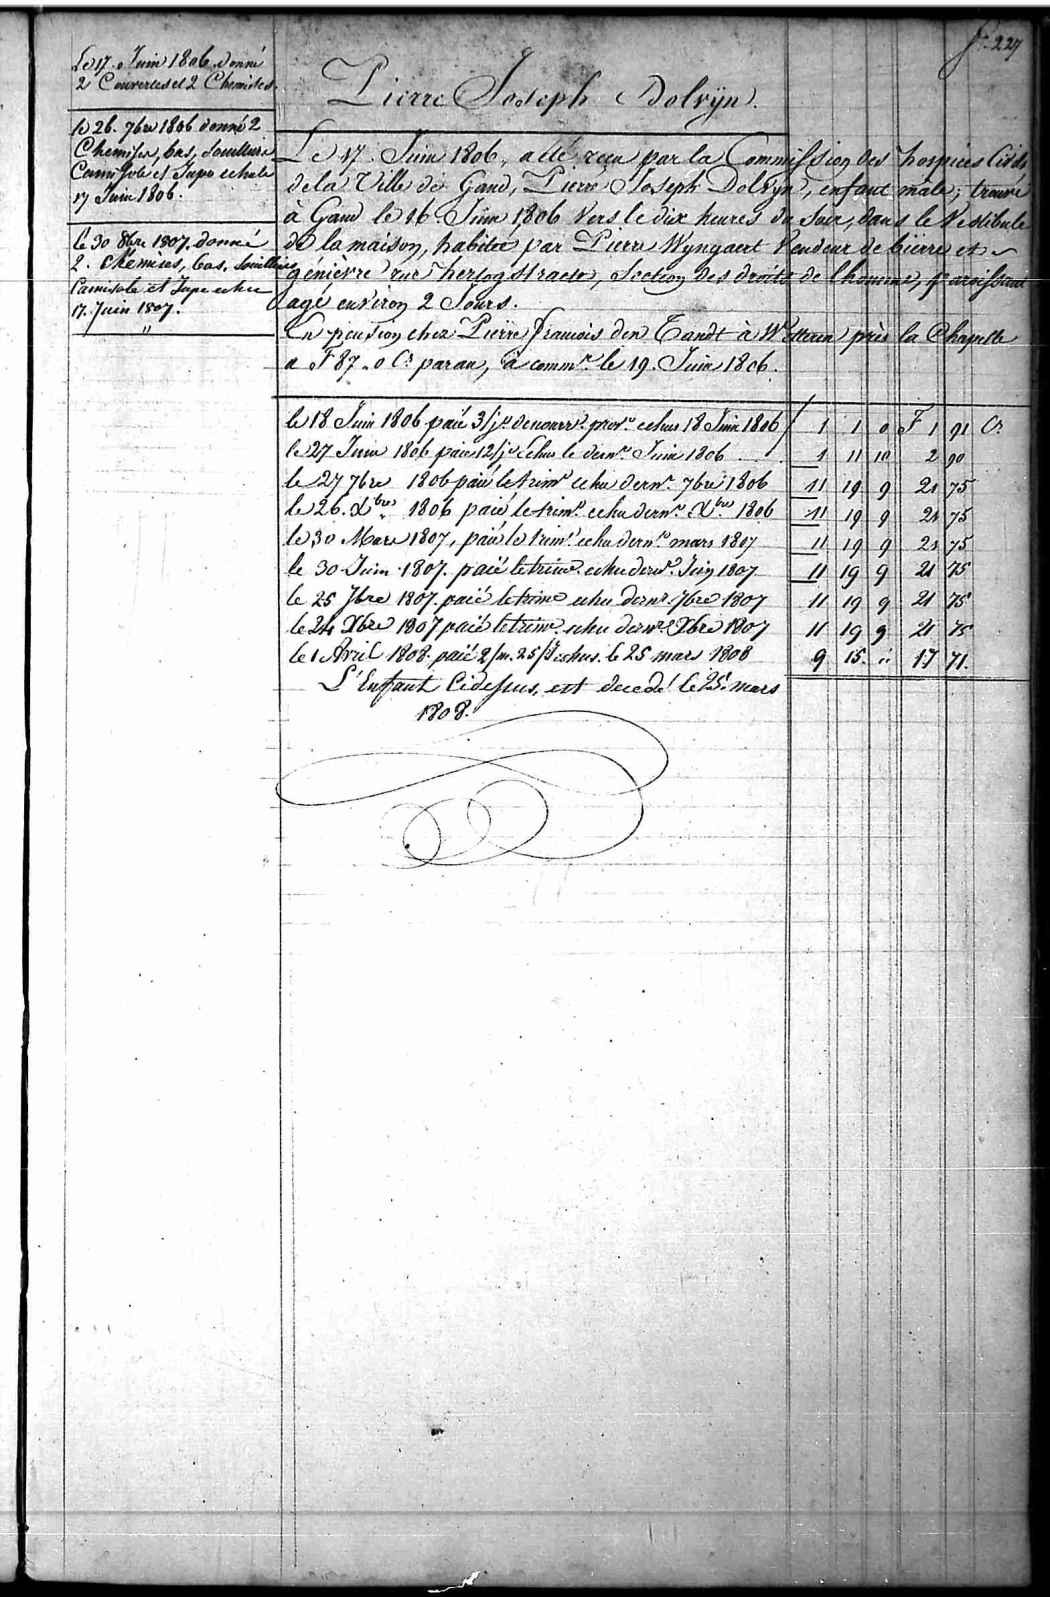 f. 227
Le 17. Juin 1806. donné
2 Couvertes et 2 Chemises.
le 26. 7bre 1806 donné 2
Chemises, bas, Soulliers
Camisole et Jupe echule
17 Juin 1806.
le 30 8bre 1807. donné
2. chemises, bas, Soulliers
Camisole et Jupe echu
17. Juin 1807.
"
Pierre Joseph Dolvÿn.
Le 17. Juin 1806, a été recu par la Commission des hospices Civils
de la Ville de Gand, Pierre Joseph Dolvyn, enfant male; trouvé
à Gand le 16 Juin 1806 vers le dix heures du Soir, dans le Vestibule
de la maison, habitée par Pierre Wyngaert Vendeur de bierre et
génièvre rue hertogstraete, Section des droits de l'homme, paroissant
agé environ 2 Jours.
En pension chez Pierre francois den Tandt à Wetteren près la Chapelle
a F 87 " 0 Cs par an, à commr. le 19. Juin 1806.
le 18 Juin 1806 paié 3/je de nourre. prove. echus 18 Juin 1806 1 1 0 F 1 91 Cs
le 27 Juin 1806 paié 12/je echus le dernr. Juin 1806 1 11 10 2 90
le 27 7bre 1806 paié le trime. echu dernr. 7bre 1806 11 19 9 21 75
le 26. Xbre 1806 paié le trime. echu dernr. Xbre 1806 11 19 9 21 75
le 30 Mars 1807, paié le trime. echu dernr. mars 1807 11 19 9 21 75
le 30 Juin 1807. paié le trime. echu dernr. Juin 1807 11 19 9 21 75
le 25 7bre 1807. paié le trime echu dernr. 7bre 1807 11 19 9 21 75
le 24 Xbre 1807 paié le trime. echu dernr. Xbre 1807 11 19 9 21 75
le 1 Avril 1808. paié 2/m. 25/je echus. le 25 mars 1808 9 15. " 17 71.
L'Enfant Cidessus, est decedé le 25. mars
1808.